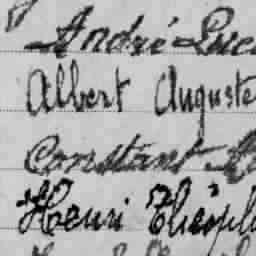 André Luc
Albert Auguste
Constant
Henri Théoph